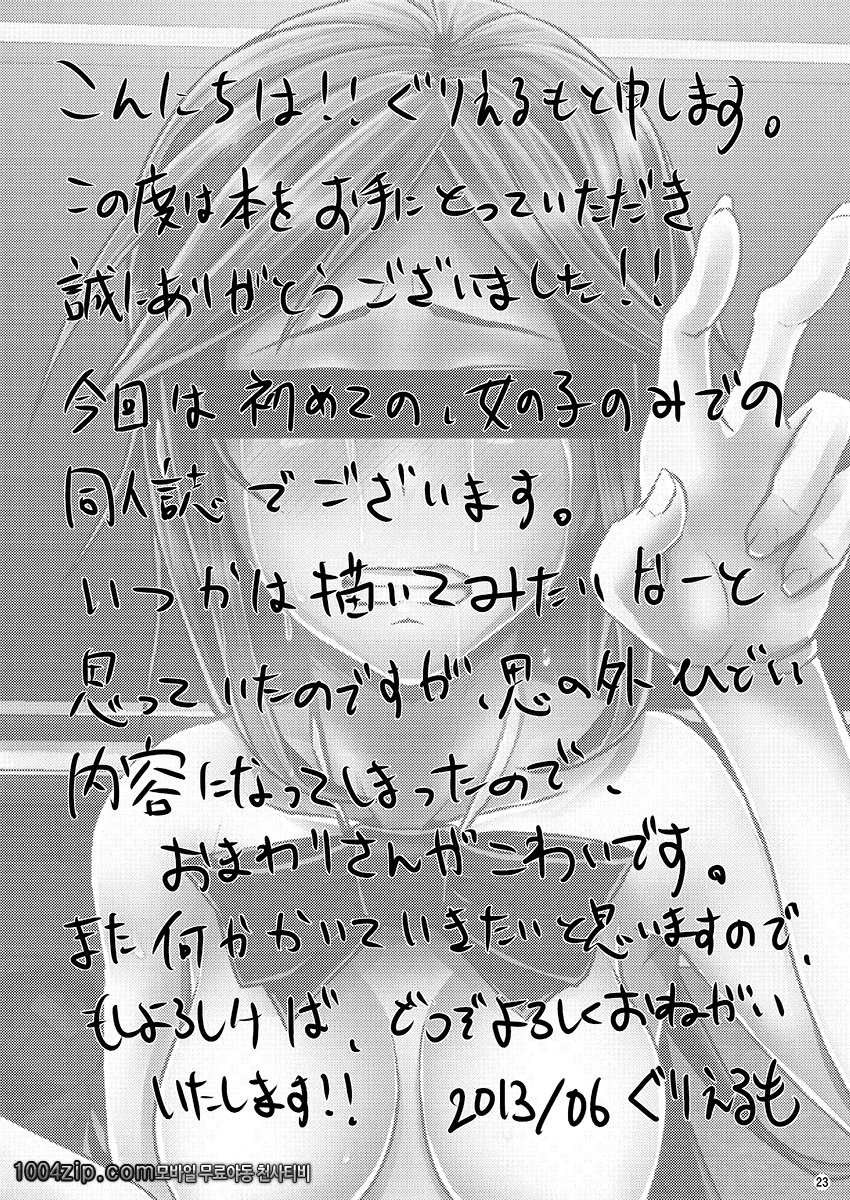 こんにちは!! ぐりえるもと申します。
この度は本をお手にとっていただき
誠にありがとうございました!!
今回は初めての、女の子のみでの
同人誌でございます。
いつかは描いてみたいなーと
思っていたのですが、思の外ひどい
内容になってしまったので、
おまわりさんがこわいです。
また何かかいていきたいと思いますので、
もしよろしければ、どうぞよろしくおねがい
いたします!! 2013/06 ぐりえるも
1004zip.com모바일 무료야동 천사티비
23